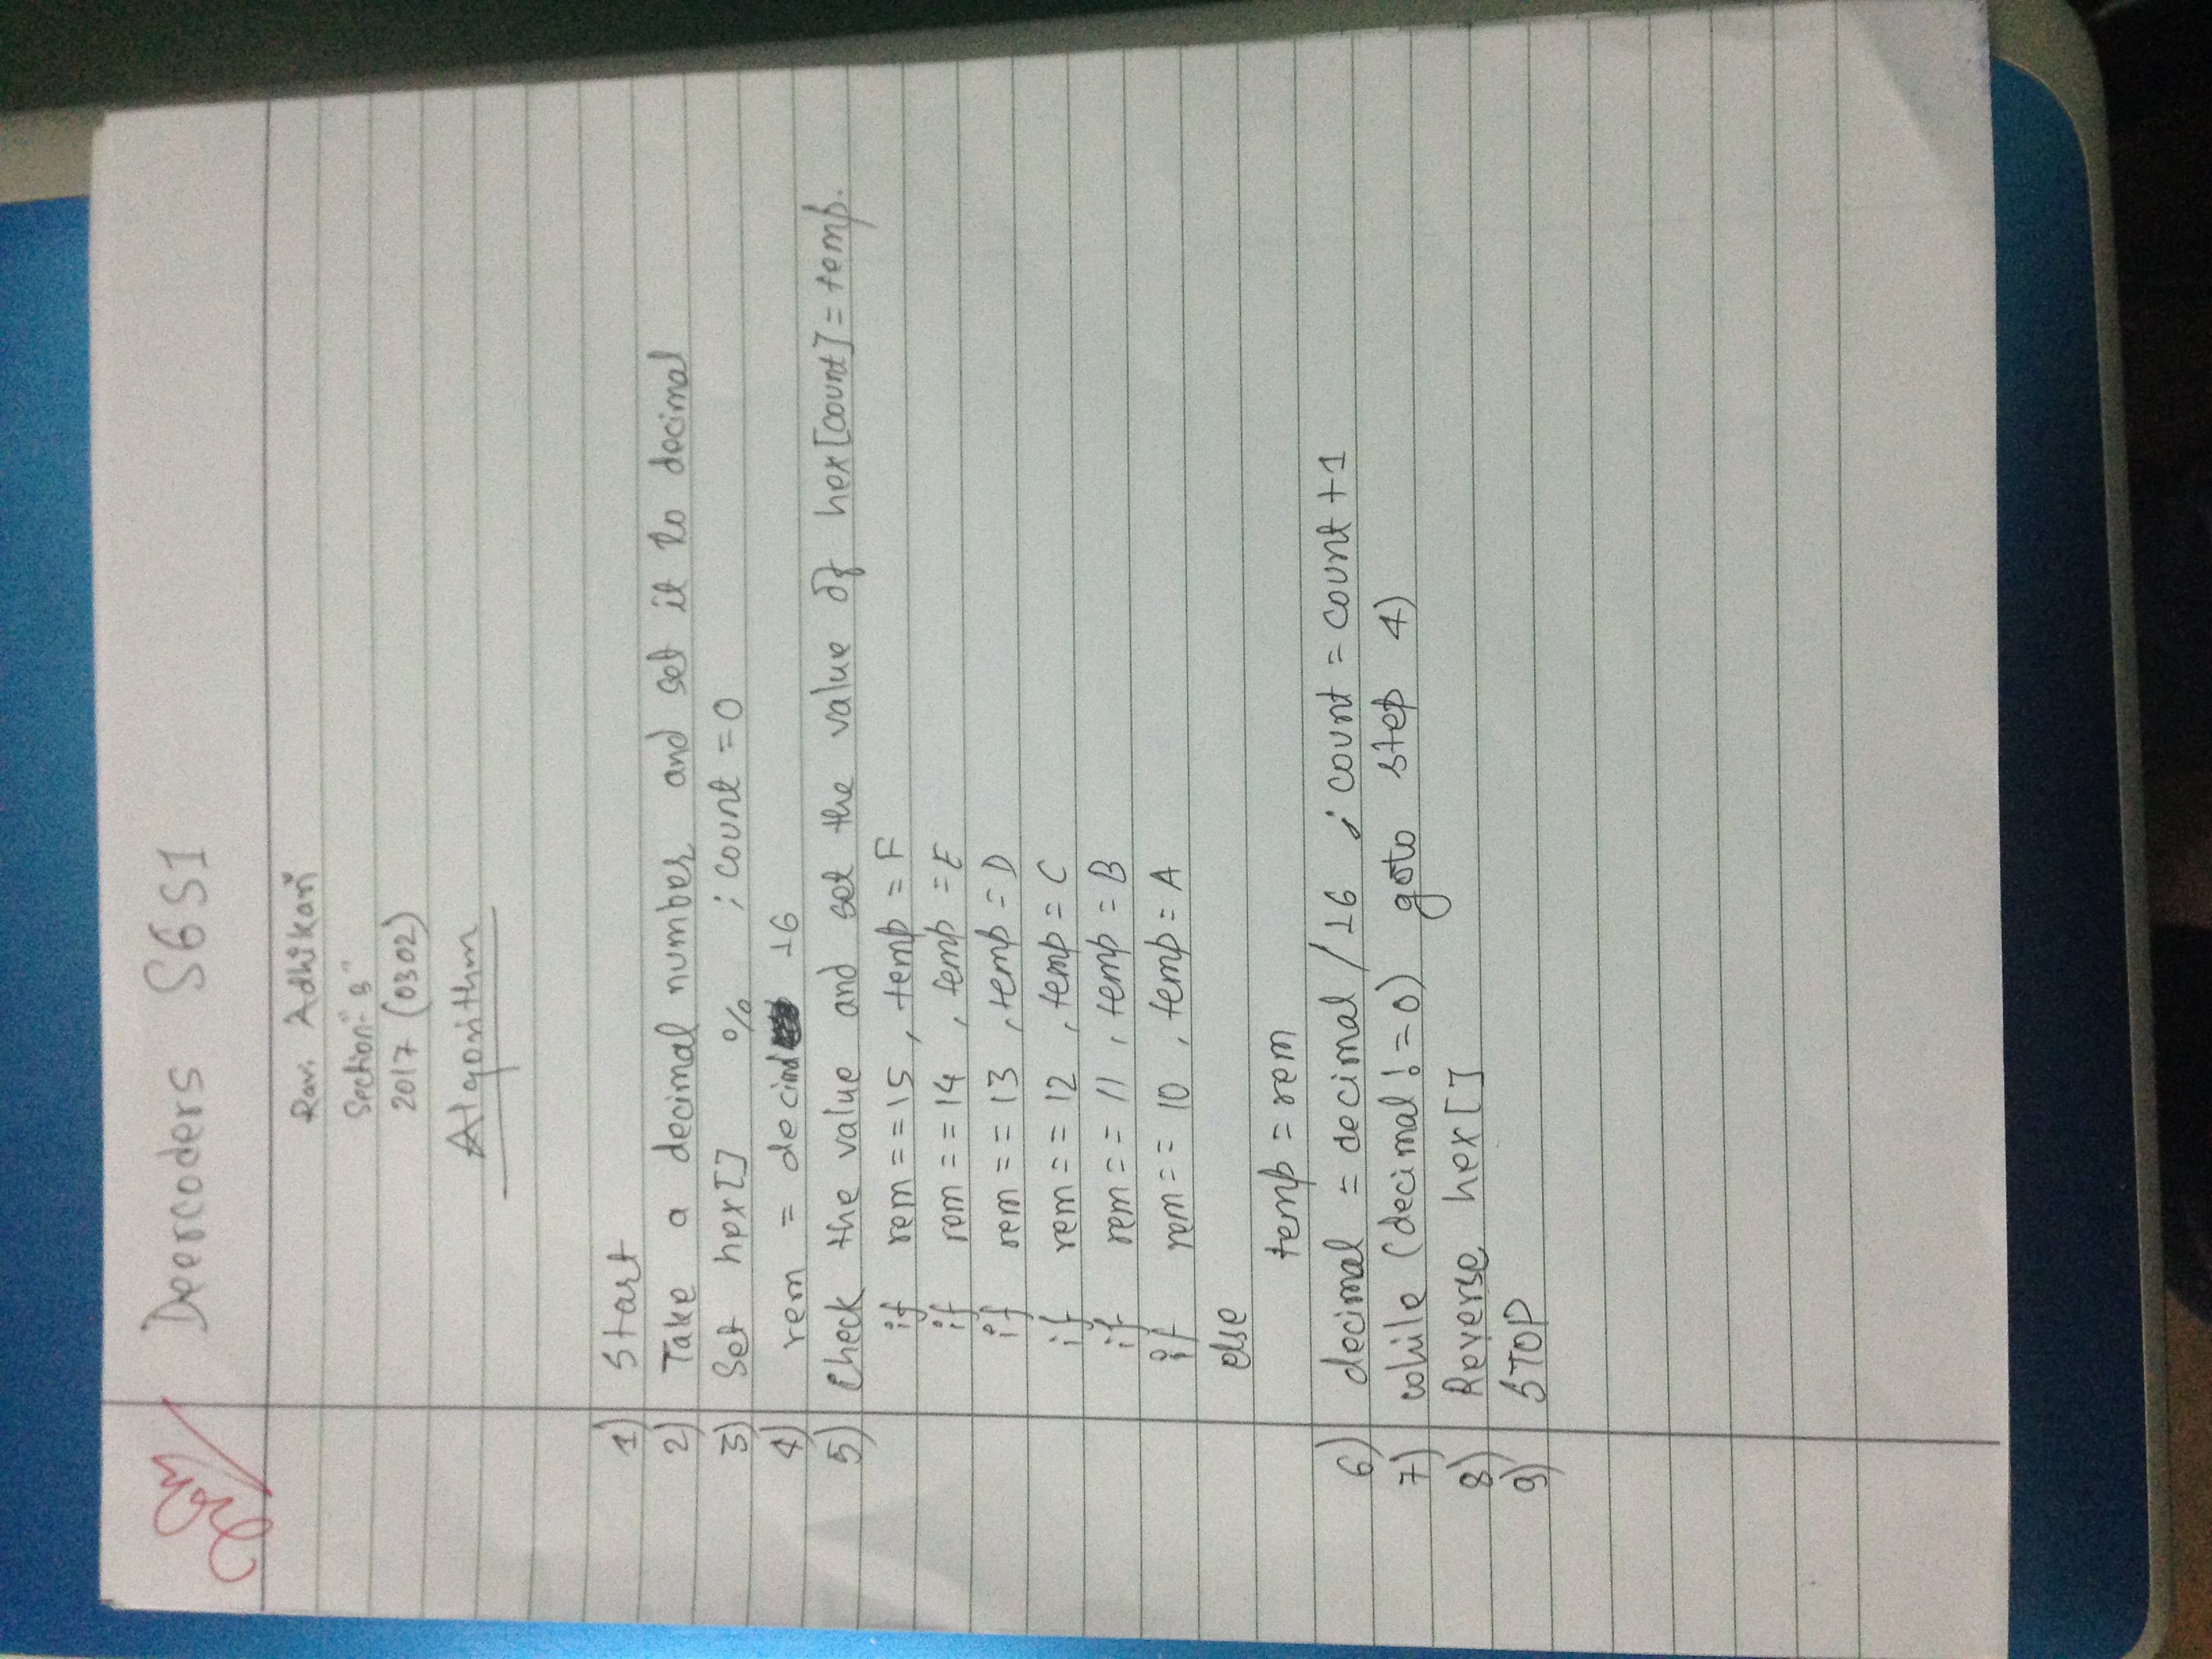 Deercoders S6S1
Ravi Adhikari
Section "B"
2017 (0302)
Algorithm
1) Start
2) Take a decimal number and set it to decimal
3) Set hex[] ; count = 0
4) rem = decimal % 16
5) Check the value and set the value of hex[count] = temp.
if rem == 15 , temp = F
if rem == 14 , temp = E
if rem == 13 , temp = D
if rem == 12 , temp = C
if rem == 11 , temp = B
if rem == 10 , temp = A
else
temp = rem
6) decimal = decimal / 16 ; count = count + 1
7) while (decimal != 0) goto step 4)
8) Reverse hex[]
9) STOP